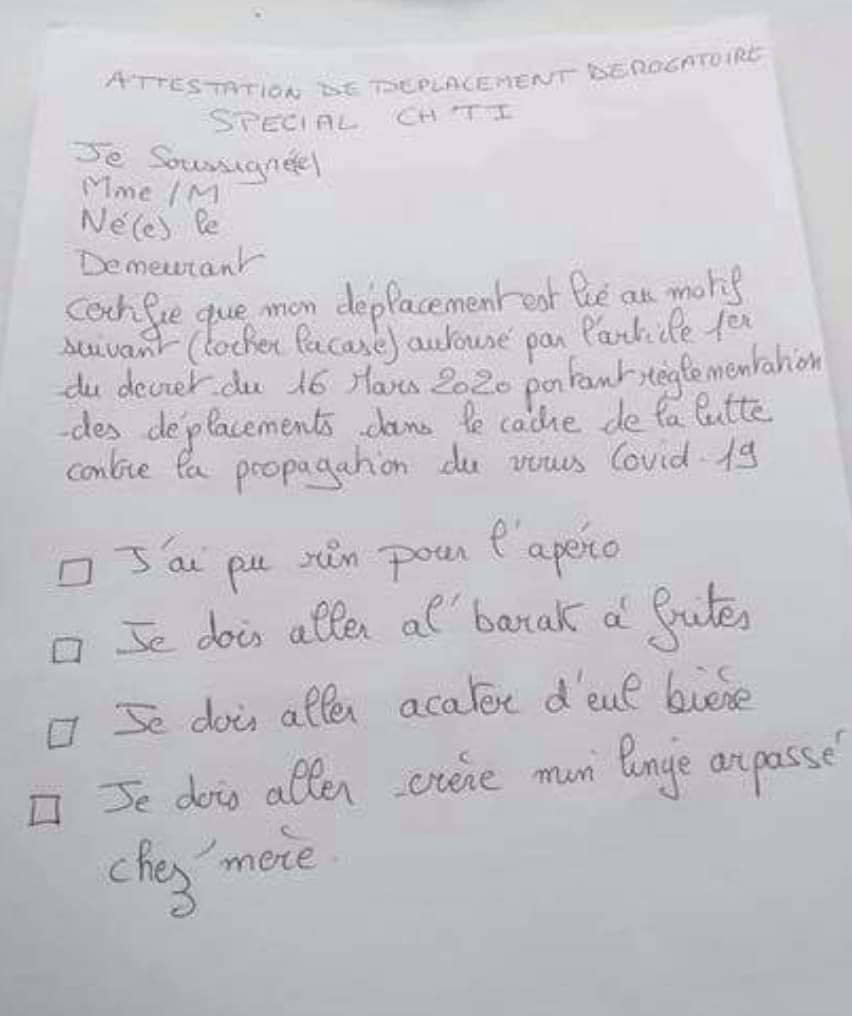 ATTESTATION DE DEPLACEMENT DEROGATOIRE
SPECIAL CH'TI
Je Soussigné(e)
Mme / M
Né(e) le
Demeurant
certifie que mon déplacement est lié au motif
suivant (cocher la case) autorisé par l'article 1er
du decret du 16 Mars 2020 portant réglementation
des déplacements dans le cadre de la lutte
contre la propagation du virus Covid-19
□ J'ai pu rin pour l'apéro
□ Je dois aller al' barak à frites
□ Je dois aller acater d'eul bière
□ Je dois aller crère min linge arpassé
chez' mère.